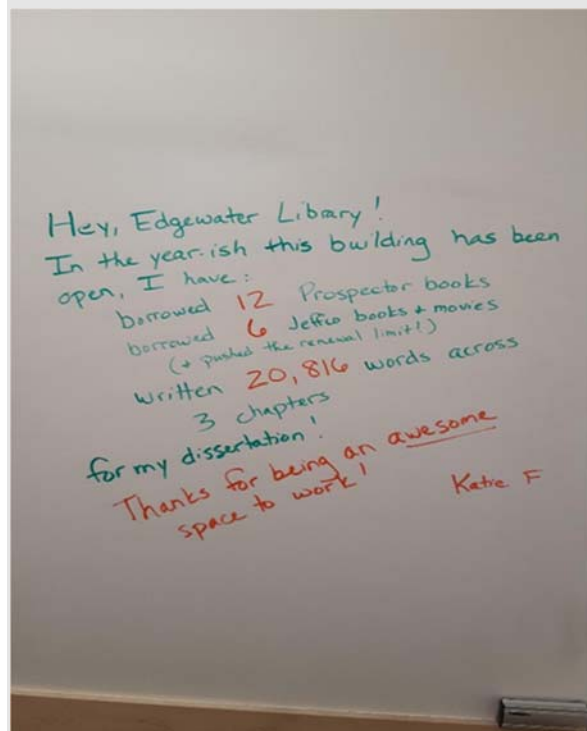 Hey, Edgewater Library!
In the year-ish this building has been
open, I have:
borrowed 12 Prospector books
borrowed 6 Jeffco books + movies
(+ pushed the renewal limit!)
written 20,816 words across
3 chapters
for my dissertation!
Thanks for being an awesome
space to work!
Katie F